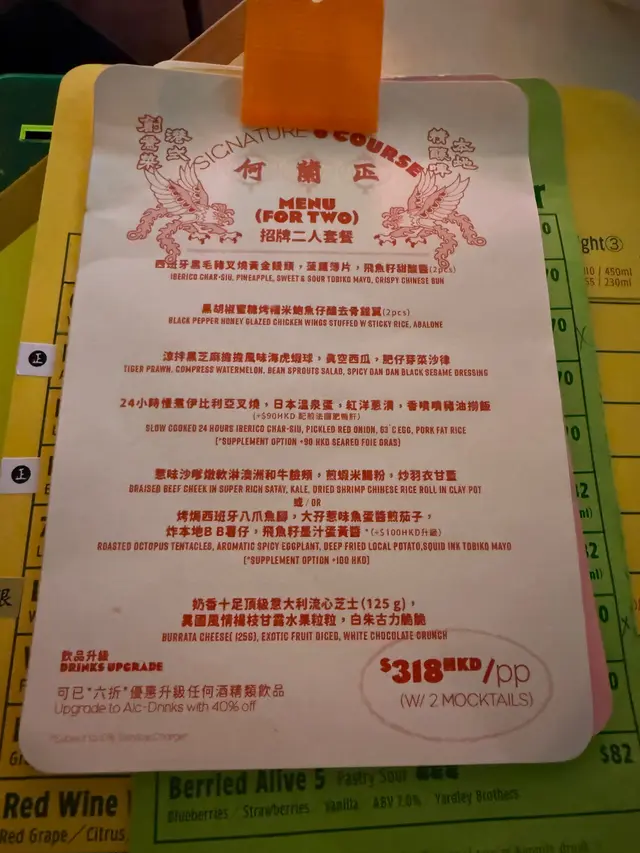 SIGNATURE 6 COURSE
何蘭正
MENU
(FOR TWO)
招牌二人套餐
西班牙黑毛豬叉燒黃金饅頭，菠蘿薄片，飛魚籽甜酸醬(2pcs)
IBERICO CHAR-SIU, PINEAPPLE, SWEET & SOUR TOBIKO MAYO, CRISPY CHINESE BUN
黑胡椒蜜糖烤糯米鮑魚仔釀去骨雞翼(2pcs)
BLACK PEPPER HONEY GLAZED CHICKEN WINGS STUFFED W STICKY RICE, ABALONE
涼拌黑芝麻擔擔風味海虎蝦球，真空西瓜，肥仔芽菜沙律
TIGER PRAWN, COMPRESS WATERMELON, BEAN SPROUTS SALAD, SPICY DAN DAN BLACK SESAME DRESSING
24小時慢煮伊比利亞叉燒，日本溫泉蛋，紅洋蔥漬，香噴噴豬油撈飯
(+$90HKD 配煎法國肥鴨肝)
SLOW COOKED 24 HOURS IBERICO CHAR-SIU, PICKLED RED ONION, 63°C EGG, PORK FAT RICE
(*SUPPLEMENT OPTION +90 HKD SEARED FOIE GRAS)
惹味沙嗲燉軟淋澳洲和牛臉頰，煎蝦米腸粉，炒羽衣甘藍
BRAISED BEEF CHEEK IN SUPER RICH SATAY, KALE, DRIED SHRIMP CHINESE RICE ROLL IN CLAY POT
或/OR
烤焗西班牙八爪魚腳，大孖惹味魚蛋醬煎茄子，
炸本地BB薯仔，飛魚籽墨汁蛋黃醬 *(+$100HKD升級)
ROASTED OCTOPUS TENTACLES, AROMATIC SPICY EGGPLANT, DEEP FRIED LOCAL POTATO,SQUID INK TOBIKO MAYO
(*SUPPLEMENT OPTION +100 HKD)
奶香十足頂級意大利流心芝士(125g)，
異國風情楊枝甘露水果粒粒，白朱古力脆脆
BURRATA CHEESE( 125G), EXOTIC FRUIT DICED, WHITE CHOCOLATE CRUNCH
飲品升級
DRINKS UPGRADE
可已"六折"優惠升級任何酒精類飲品
Upgrade to Alc-Drinks with 40% off
$318HKD/pp
(W/ 2 MOCKTAILS)
正
正
$82
Berried Alive 5 Pastry Sour
Blueberries / Strawberries Vanilla ABV 7.0% Yardley Brothers
Red Wine
Red Grape / Citrus